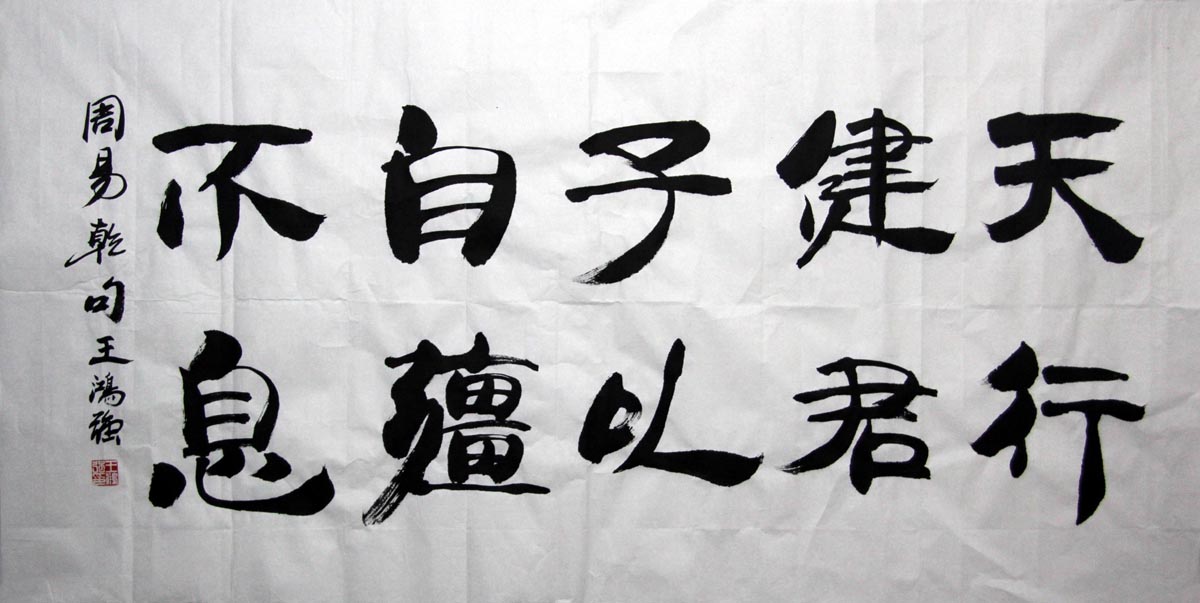 天行
健君
子以
自彊
不息
周易乾句王鴻强